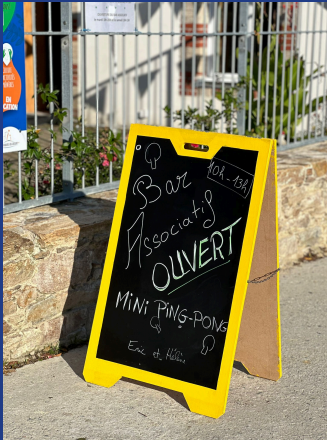 10h - 13h
Bar
Associatif
OUVERT
MiNi PiNG-PONG
Eric et Hélène
EN